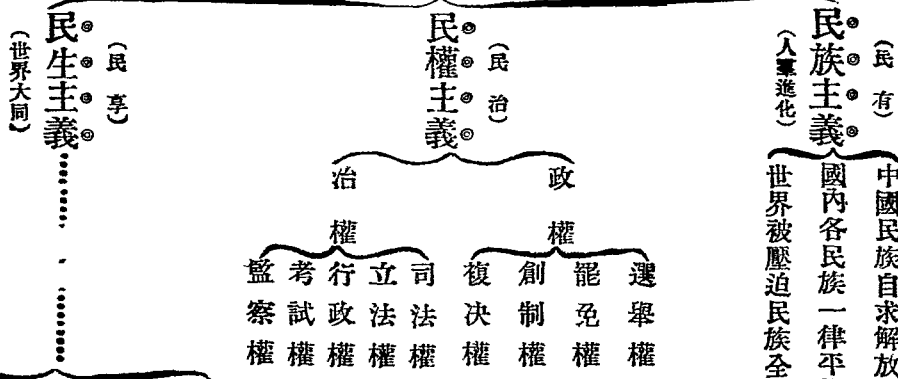 （民有）
民族主義
（人羣進化）
中國民族自求解放
國內各民族一律平
世界被壓迫民族全
（民治）
民權主義
政權
選舉權
罷免權
創制權
複决權
治權
司法權
立法權
行政權
考試權
監察權
（民享）
民生主義
（世界大同）